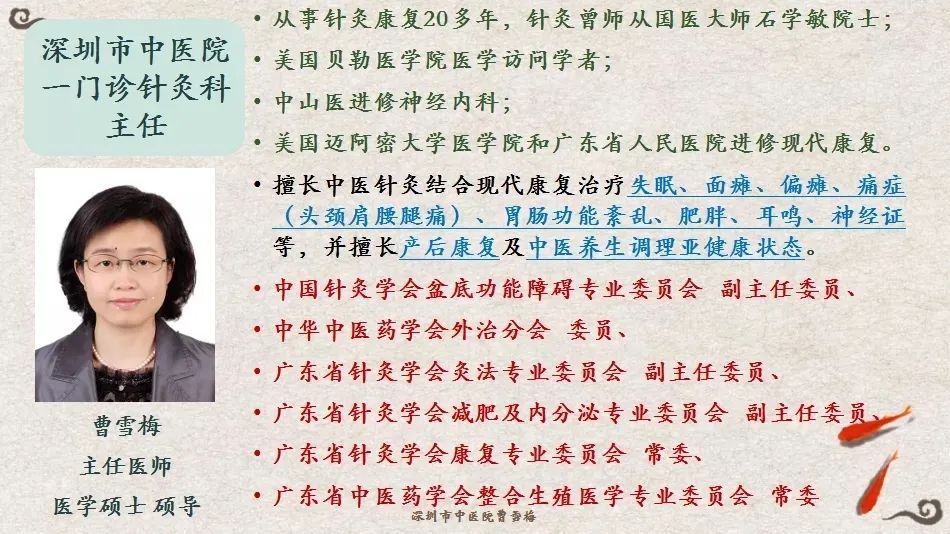 深圳市中医院
一门诊针灸科
主任
曹雪梅
主任医师
医学硕士 硕导
• 从事针灸康复20多年，针灸曾师从国医大师石学敏院士；
• 美国贝勒医学院医学访问学者；
• 中山医进修神经内科；
• 美国迈阿密大学医学院和广东省人民医院进修现代康复。
• 擅长中医针灸结合现代康复治疗失眠、面瘫、偏瘫、痛症
（头颈肩腰腿痛）、胃肠功能紊乱、肥胖、耳鸣、神经证
等，并擅长产后康复及中医养生调理亚健康状态。
• 中国针灸学会盆底功能障碍专业委员会 副主任委员、
• 中华中医药学会外治分会 委员、
• 广东省针灸学会灸法专业委员会 副主任委员、
• 广东省针灸学会减肥及内分泌专业委员会 副主任委员、
• 广东省针灸学会康复专业委员会 常委、
• 广东省中医药学会整合生殖医学专业委员会 常委
深圳市中医院曹雪梅